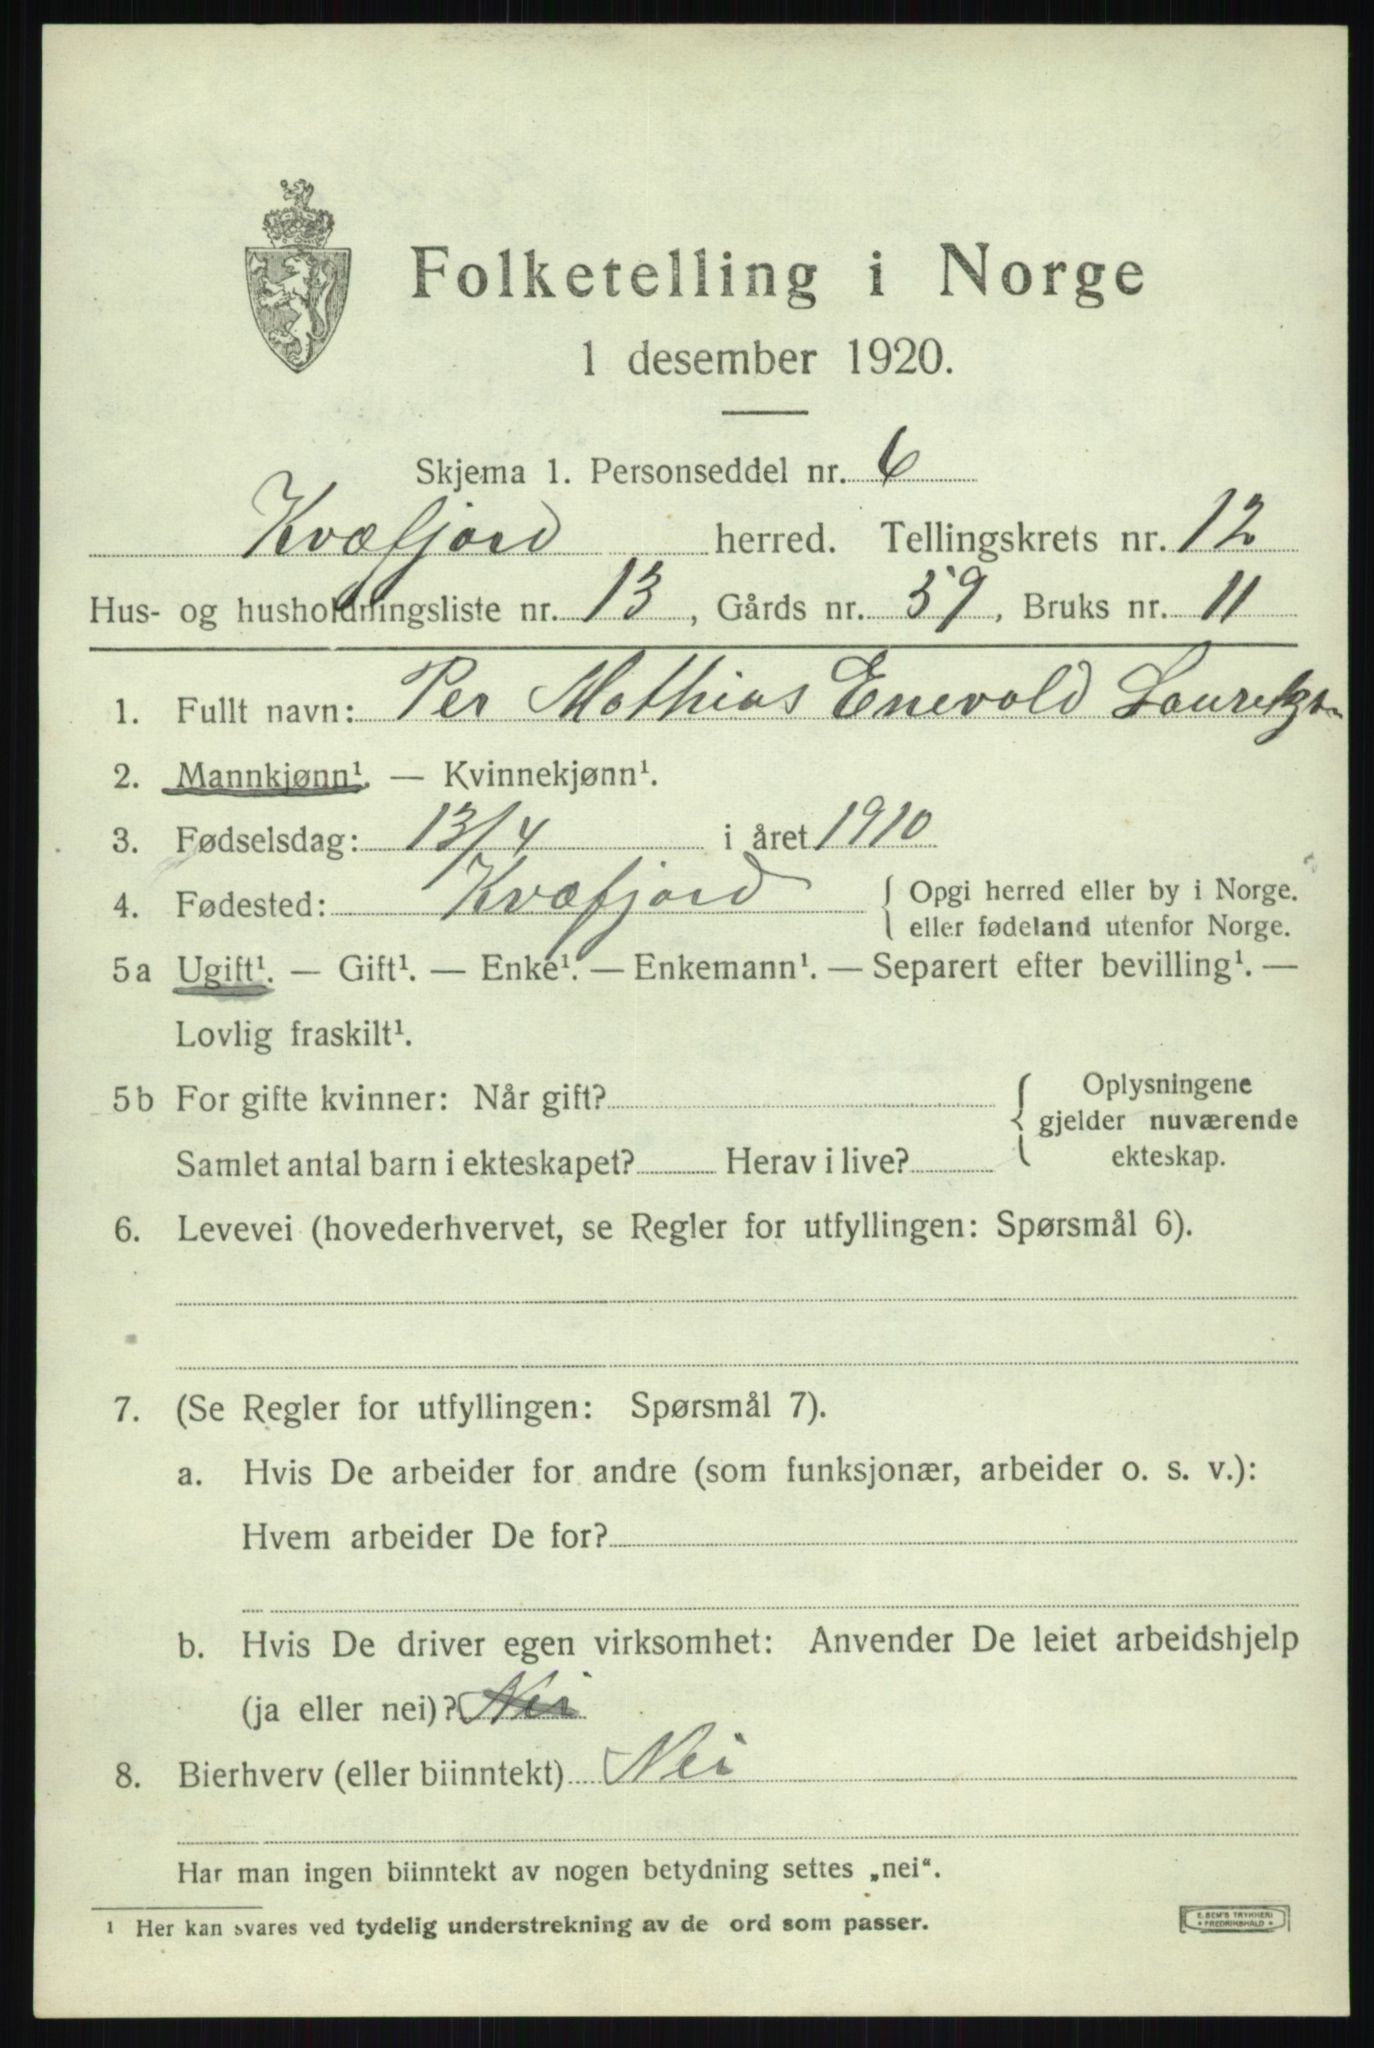 Folketelling i Norge
1 desember 1920.
Skjema 1. Personseddel nr. 6
Kvæfjord herred. Tellingskrets nr. 12
Hus- og husholdningsliste nr. 13, Gårds nr. 59, Bruks nr. 11
1. Fullt navn: Per Mathias Enevold
2. Mannkjønn¹. — Kvinnekjønn¹.
3. Fødselsdag: 13/4 i året 1910
4. Fødested: Kvæfjord { Opgi herred eller by i Norge.
eller fødeland utenfor Norge.
5a Ugift¹. — Gift¹. — Enke¹. — Enkemann¹. — Separert efter bevilling¹. —
Lovlig fraskilt¹.
5b For gifte kvinner: Når gift? { Oplysningene
gjelder nuværende
Samlet antal barn i ekteskapet? Herav i live? ekteskap.
6. Levevei (hovederhvervet, se Regler for utfyllingen: Spørsmål 6).
7. (Se Regler for utfyllingen: Spørsmål 7).
a. Hvis De arbeider for andre (som funksjonær, arbeider o. s. v.):
Hvem arbeider De for?
b. Hvis De driver egen virksomhet: Anvender De leiet arbeidshjelp
(ja eller nei)? Nei
8. Bierhverv (eller biinntekt) Nei
Har man ingen biinntekt av nogen betydning settes „nei“.
¹ Her kan svares ved tydelig understrekning av de ord som passer.
E. SEM'S TRYKKERI
FREDRIKSHALD